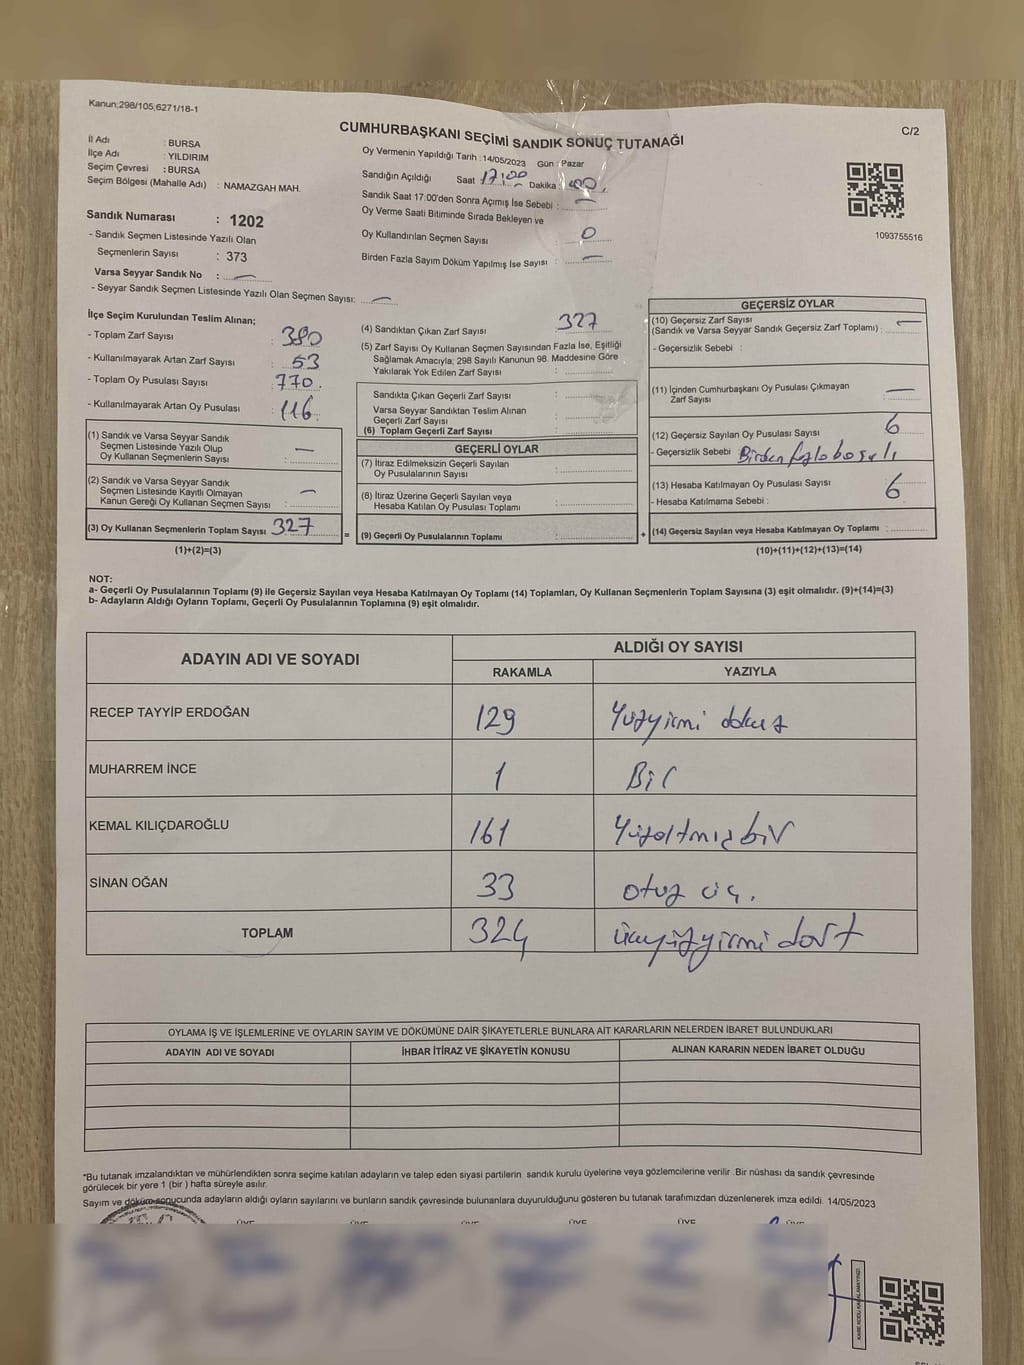 Kanun;298/105,6271/18-1
C/2
CUMHURBAŞKANI SEÇİMİ SANDIK SONUÇ TUTANAĞI
İl Adı : BURSA
İlçe Adı : YILDIRIM
Seçim Çevresi : BURSA
Seçim Bölgesi (Mahalle Adı) : NAMAZGAH MAH.
Sandık Numarası : 1202
- Sandık Seçmen Listesinde Yazılı Olan
Seçmenlerin Sayısı : 373
Varsa Seyyar Sandık No : —
- Seyyar Sandık Seçmen Listesinde Yazılı Olan Seçmen Sayısı: —
Oy Vermenin Yapıldığı Tarih : 14/05/2023 Gün : Pazar
Sandığın Açıldığı Saat 17:00 Dakika : 00
Sandık Saat 17:00'den Sonra Açımış İse Sebebi : —
Oy Verme Saati Bitiminde Sırada Bekleyen ve
Oy Kullandırılan Seçmen Sayısı : 0
Birden Fazla Sayım Döküm Yapılmış İse Sayısı : —
1093755516
İlçe Seçim Kurulundan Teslim Alınan;
- Toplam Zarf Sayısı : 380
- Kullanılmayarak Artan Zarf Sayısı : 53
- Toplam Oy Pusulası Sayısı : 770.
- Kullanılmayarak Artan Oy Pusulası : 116
(1) Sandık ve Varsa Seyyar Sandık
Seçmen Listesinde Yazılı Olup
Oy Kullanan Seçmenlerin Sayısı : —
(2) Sandık ve Varsa Seyyar Sandık
Seçmen Listesinde Kayıtlı Olmayan
Kanun Gereği Oy Kullanan Seçmen Sayısı : —
(3) Oy Kullanan Seçmenlerin Toplam Sayısı : 327
(1)+(2)=(3)
=
(4) Sandıktan Çıkan Zarf Sayısı : 327
(5) Zarf Sayısı Oy Kullanan Seçmen Sayısından Fazla İse, Eşitliği
Sağlamak Amacıyla, 298 Sayılı Kanunun 98. Maddesine Göre
Yakılarak Yok Edilen Zarf Sayısı :
Sandıkta Çıkan Geçerli Zarf Sayısı :
Varsa Seyyar Sandıktan Teslim Alınan
Geçerli Zarf Sayısı :
(6) Toplam Geçerli Zarf Sayısı :
GEÇERLİ OYLAR
(7) İtiraz Edilmeksizin Geçerli Sayılan
Oy Pusulasının Sayısı :
(8) İtiraz Üzerine Geçerli Sayılan veya
Hesaba Katılan Oy Pusulası Toplamı :
(9) Geçerli Oy Pusulalarının Toplamı :
+
GEÇERSİZ OYLAR
(10) Geçersiz Zarf Sayısı
(Sandık ve Varsa Seyyar Sandık Geçersiz Zarf Toplamı) : —
- Geçersizlik Sebebi :
(11) İçinden Cumhurbaşkanı Oy Pusulası Çıkmayan
Zarf Sayısı : —
(12) Geçersiz Sayılan Oy Pusulası Sayısı : 6
- Geçersizlik Sebebi : Birden fazla basılı
(13) Hesaba Katılmayan Oy Pusulası Sayısı : 6
- Hesaba Katılmama Sebebi :
(14) Geçersiz Sayılan veya Hesaba Katılmayan Oy Toplamı :
(10)+(11)+(12)+(13)=(14)
NOT:
a- Geçerli Oy Pusulalarının Toplamı (9) ile Geçersiz Sayılan veya Hesaba Katılmayan Oy Toplamı (14) Toplamları, Oy Kullanan Seçmenlerin Toplam Sayısına (3) eşit olmalıdır. (9)+(14)=(3)
b- Adayların Aldığı Oyların Toplamı, Geçerli Oy Pusulalarının Toplamına (9) eşit olmalıdır.
ADAYIN ADI VE SOYADI
ALDIĞI OY SAYISI
RAKAMLA YAZIYLA
RECEP TAYYİP ERDOĞAN 129 Yüzyirmi dokuz
MUHARREM İNCE 1 Bir
KEMAL KILIÇDAROĞLU 161 Yüzaltmış bir
SİNAN OĞAN 33 otuz üç.
TOPLAM 324 üçyüzyirmi dört
OYLAMA İŞ VE İŞLEMLERİNE VE OYLARIN SAYIM VE DÖKÜMÜNE DAİR ŞİKAYETLERLE BUNLARA AİT KARARLARIN NELERDEN İBARET BULUNDUKLARI
ADAYIN ADI VE SOYADI İHBAR İTİRAZ VE ŞİKAYETİN KONUSU ALINAN KARARIN NEDEN İBARET OLDUĞU
*Bu tutanak imzalandıktan ve mühürlendikten sonra seçime katılan adayların ve talep eden siyasi partilerin sandık kurulu üyelerine veya gözlemcilerine verilir .Bir nüshası da sandık çevresinde
görülecek bir yere 1 (bir ) hafta süreyle asılır.
Sayım ve döküm sonucunda adayların aldığı oyların sayılarını ve bunların sandık çevresinde bulunanlara duyurulduğunu gösteren bu tutanak tarafımızdan düzenlenerek imza edildi. 14/05/2023
ÜYE ÜYE ÜYE ÜYE ÜYE ÜYE